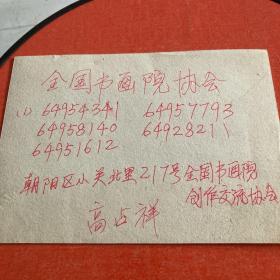 全国书画院协会
(1) 64954341 64957793
64958140 64928211
64951612
朝阳区小关北里217号全国书画院
创作交流协会
高占祥